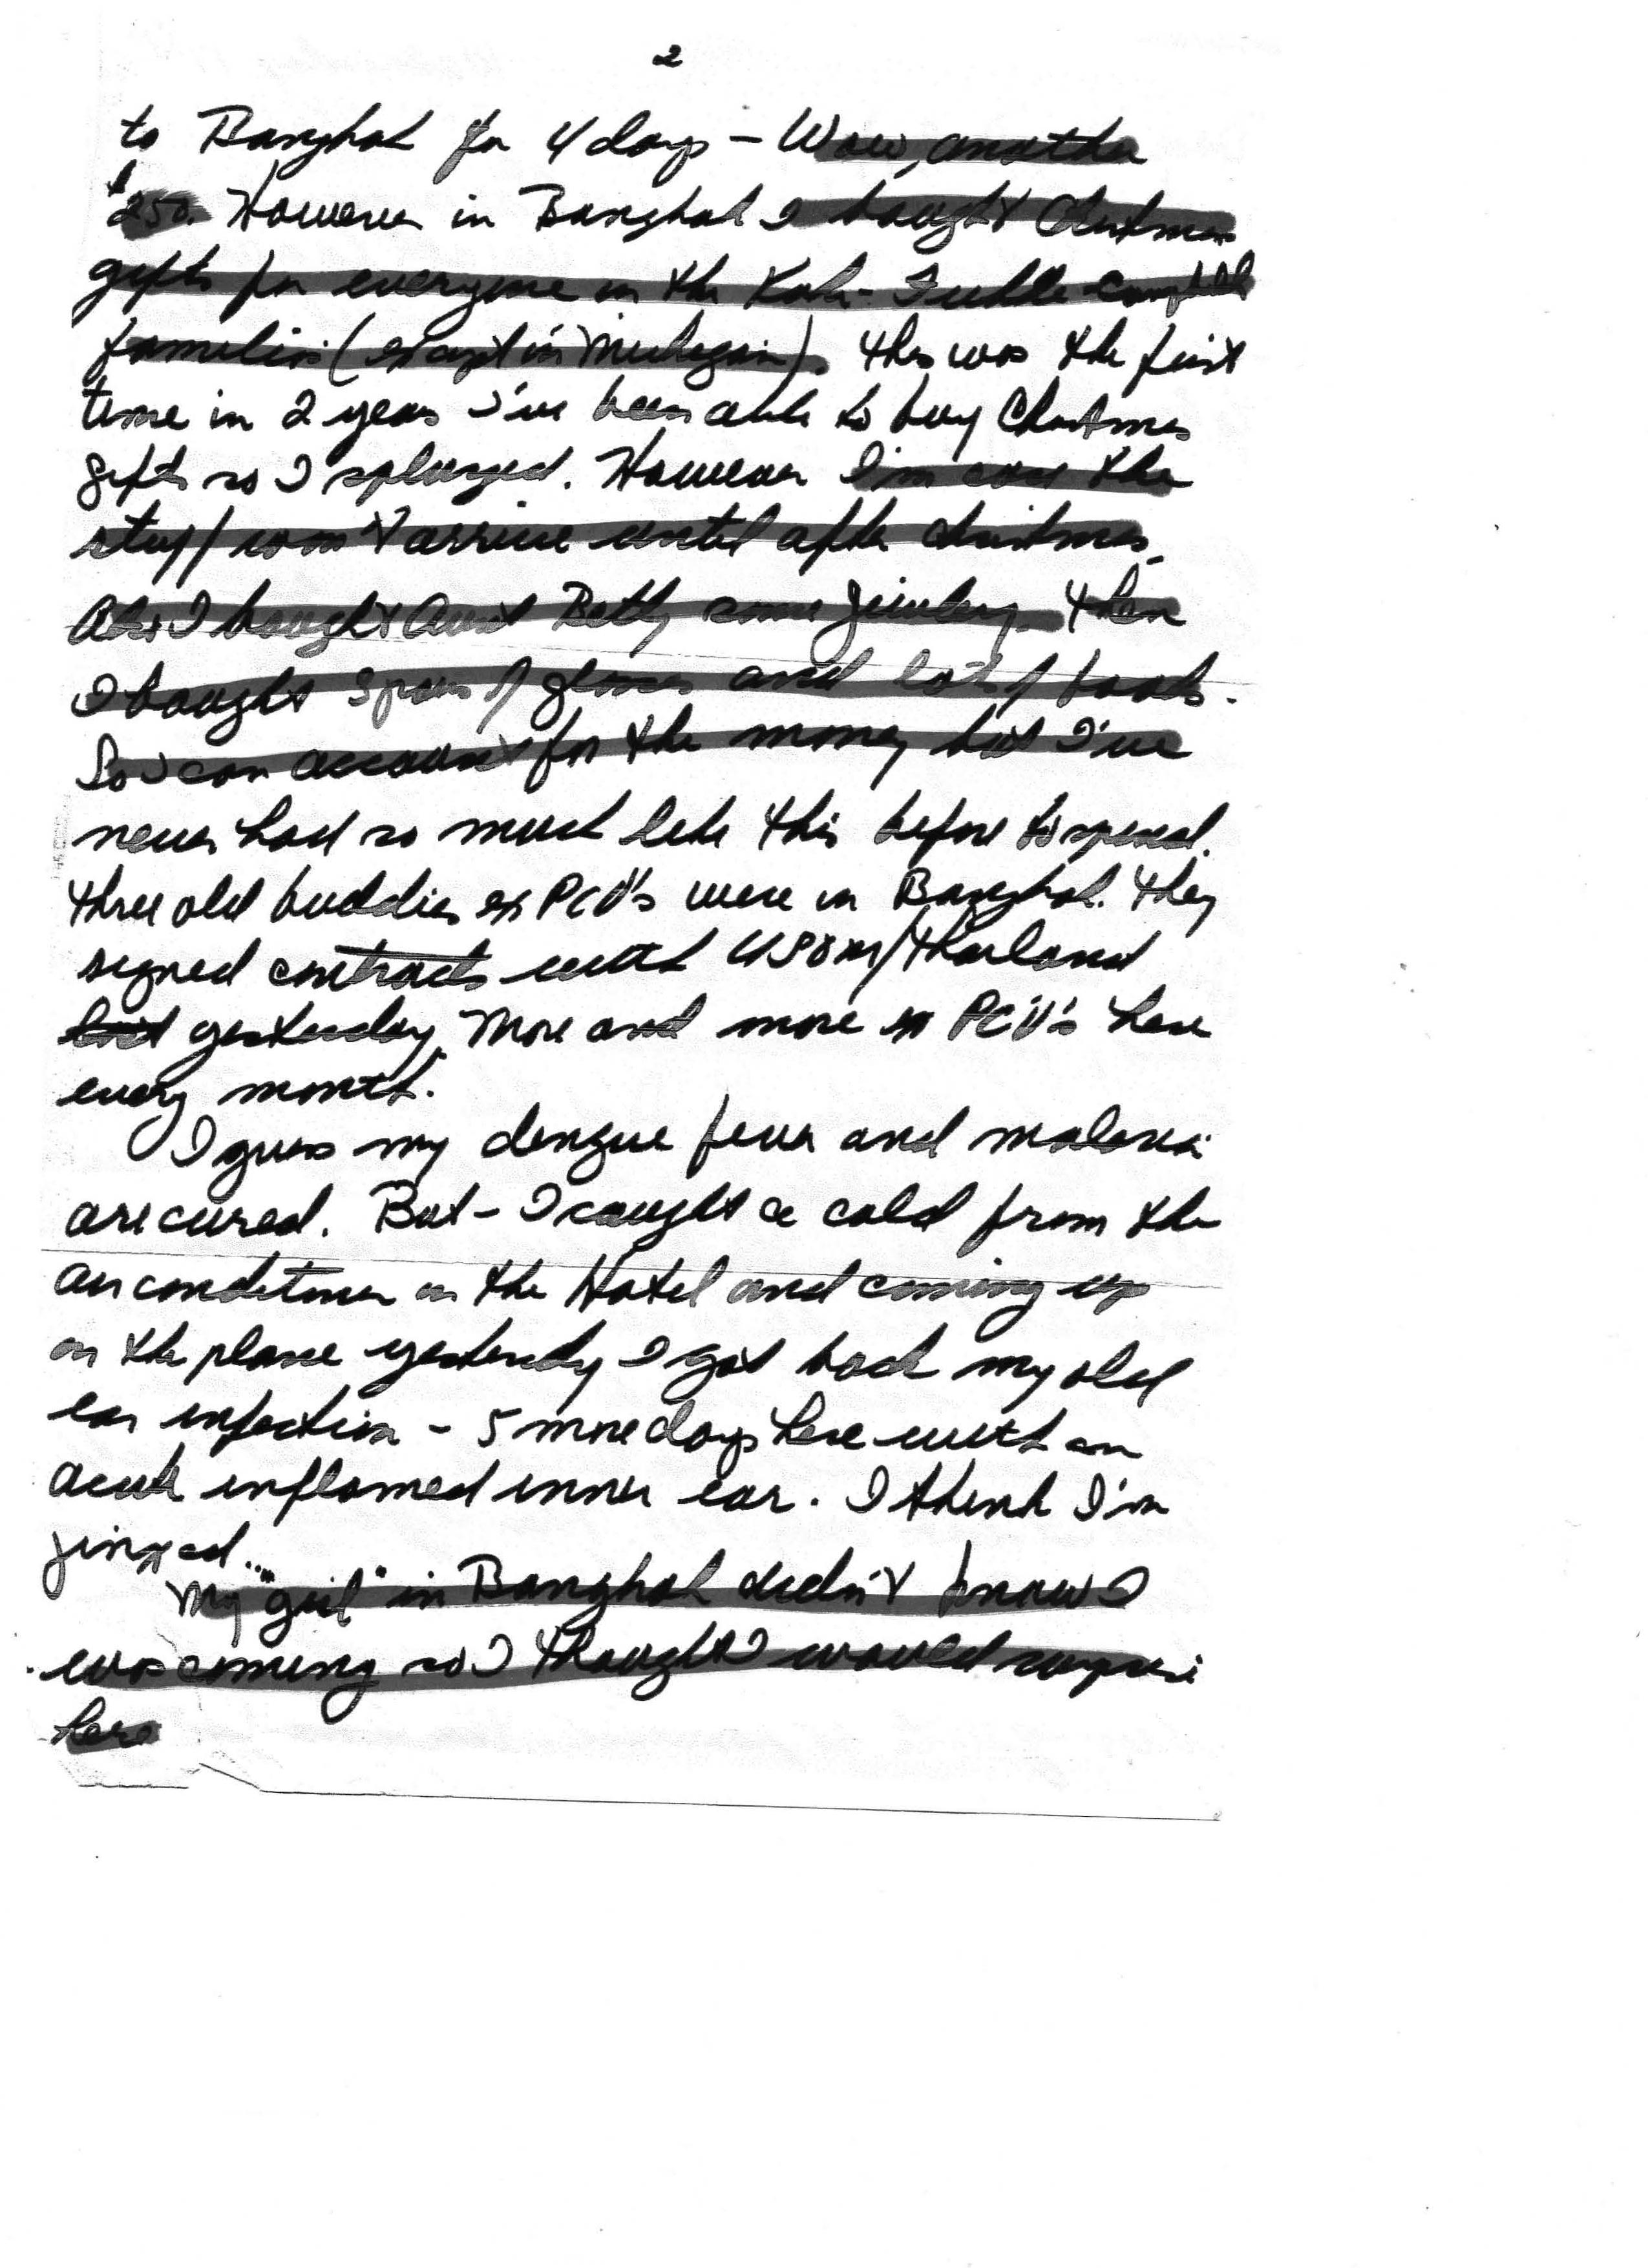 2
to Bangkok for 4 days - Wow, another
$250. However in Bangkok I bought Christmas
gifts for everyone in the - Tuttle - Campbell
families (except in Michigan). This was the first
time in 2 years I've been able to buy Christmas
gifts so I splurged. However I'm sure the
stuff won't arrive until after Christmas.
Also I bought Aunt Betty some jewelry. Then
I bought 3 pairs of glasses and lots of books.
So I can account for the money but I've
never had so much like this before to spend.
Three old buddies ex PCV's were in Bangkok. They
signed contracts with USOM/Thailand
yesterday. More and more ex PCV's here
every month.
I guess my dengue fever and malaria
are cured. But - I caught a cold from the
air conditioner in the Hotel and coming up
on the plane yesterday I got back my old
ear infection - 5 more days here with an
acute inflamed inner ear. I think I'm
jinxed...
My "girl" in Bangkok didn't know I
was coming so I thought I would surprise
here